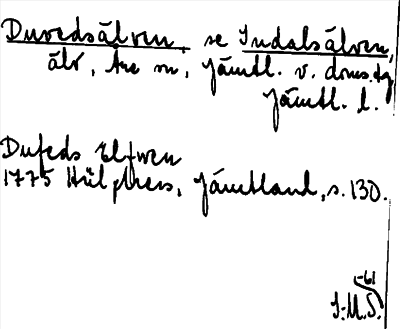 Duvedsälven, se Indalsälven,
älv, Åre sn, Jämtl. v. doms.tg
Jämtl. l.
Dufeds Elfwen
1775 Hülphers, Jämtland, s. 130.
-61
I.M.S.